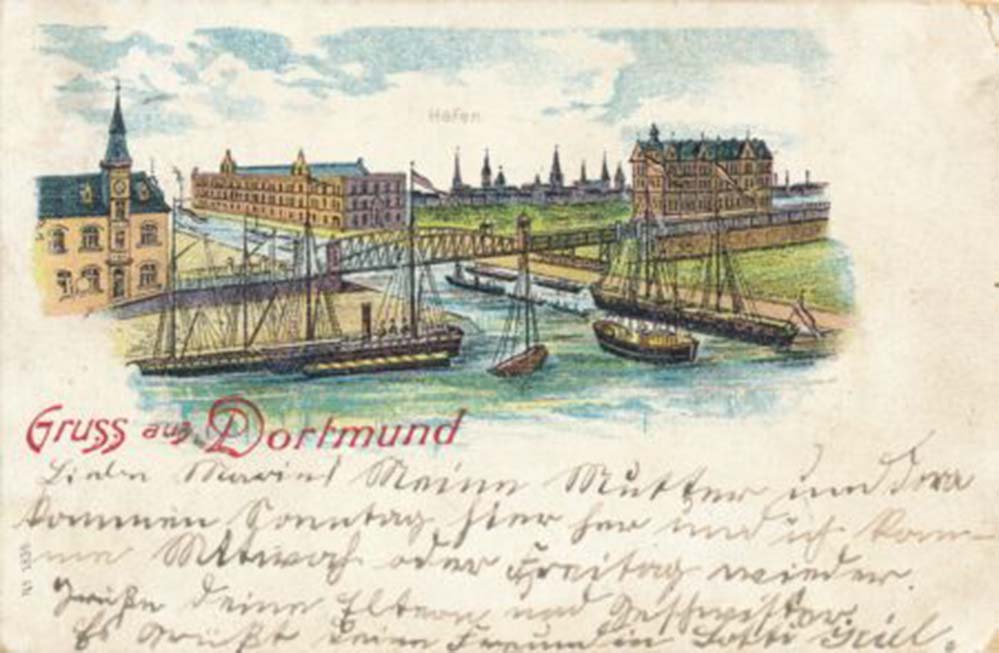 Hafen
Gruss aus Dortmund
Meine Mutter und Dora
kommen Sonntag hier her und ich kom-
me Mitwoch oder Freitag wieder.
Grüße deine Eltern und Geschwister.
Es Grüßt Deine Freundin Lotti